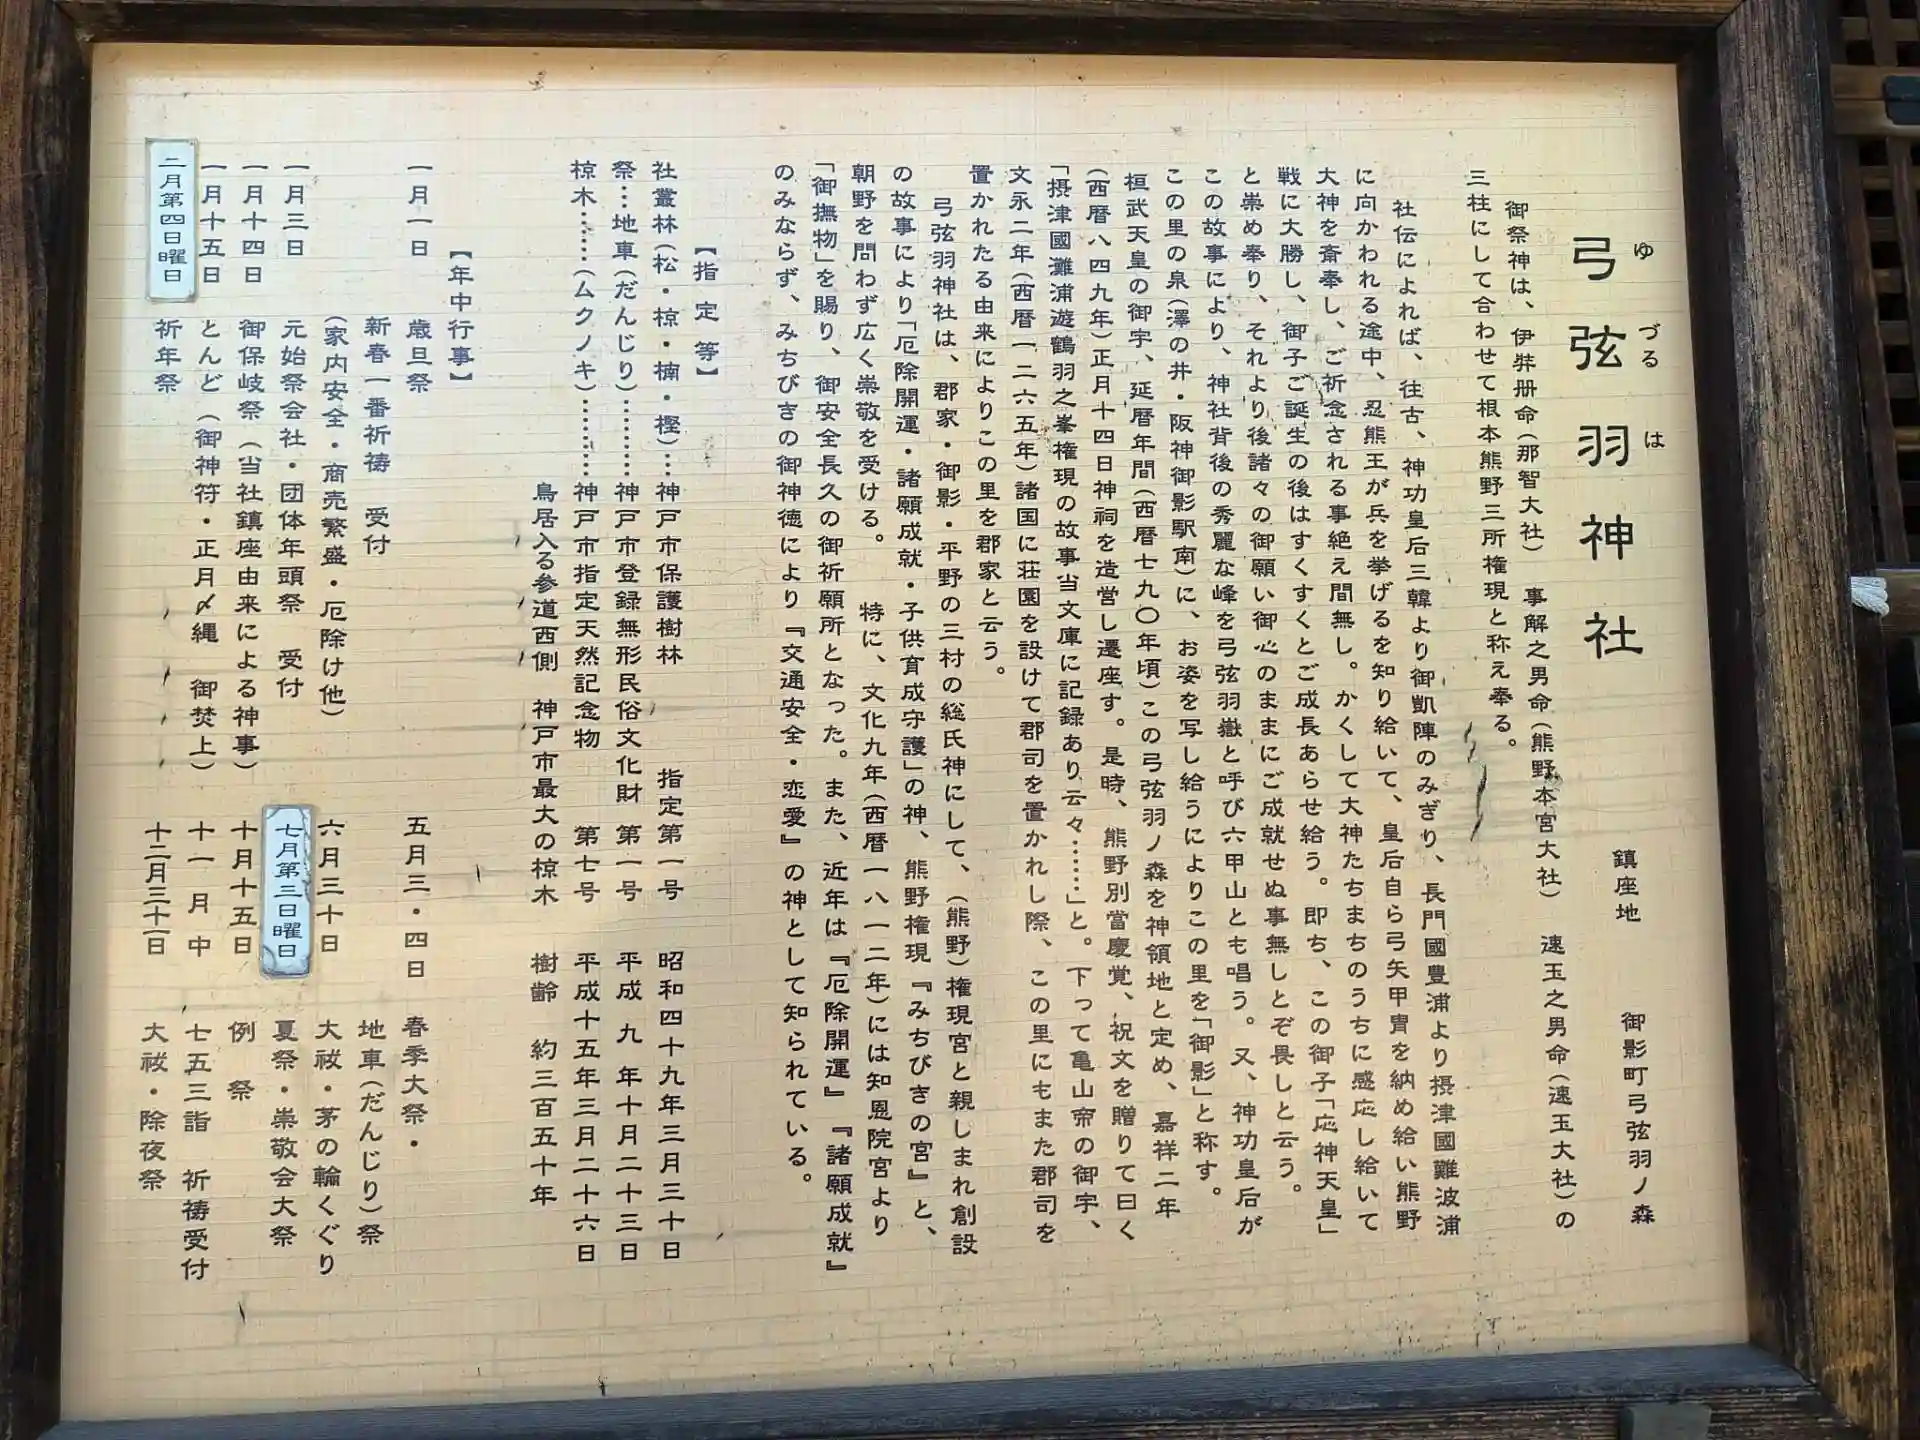 弓弦羽神社
ゆづるは
鎮座地　御影町弓弦羽ノ森
御祭神は、伊弉册命(那智大社)　事解之男命(熊野本宮大社)　速玉之男命(速玉大社)の
三柱にして合わせて根本熊野三所権現と称え奉る。
社伝によれば、往古、神功皇后三韓より御凱陣のみぎり、長門國豊浦より摂津國難波浦
に向かわれる途中、忍熊王が兵を挙げるを知り給いて、皇后自ら弓矢甲冑を納め給い熊野
大神を斎奉し、ご祈念される事絶え間無し。かくして大神たちまちのうちに感応し給いて
戦に大勝し、御子ご誕生の後はすくすくとご成長あらせ給う。即ち、この御子「応神天皇」
と崇め奉り、それより後諸々の御願い御心のままにご成就せぬ事無しとぞ畏しと云う。
この故事により、神社背後の秀麗な峰を弓弦羽嶽と呼び六甲山とも唱う。又、神功皇后が
この里の泉(澤の井・阪神御影駅南)に、お姿を写し給うによりこの里を「御影」と称す。
桓武天皇の御宇、延暦年間(西暦七九〇年頃)この弓弦羽ノ森を神領地と定め、嘉祥二年
(西暦八四九年)正月十四日神祠を造営し遷座す。是時、熊野別當慶覚、祝文を贈りて曰く
「摂津國灘浦遊鶴羽之峯権現の故事当文庫に記録あり云々……」と。下って亀山帝の御宇、
文永二年(西暦一二六五年)諸国に荘園を設けて郡司を置かれし際、この里にもまた郡司を
置かれたる由来によりこの里を郡家と云う。
弓弦羽神社は、郡家・御影・平野の三村の総氏神にして、(熊野)権現宮と親しまれ創設
の故事により「厄除開運・諸願成就・子供育成守護」の神、熊野権現『みちびきの宮』と、
朝野を問わず広く崇敬を受ける。　特に、文化九年(西暦一八一二年)には知恩院宮より
「御撫物」を賜り、御安全長久の御祈願所となった。また、近年は『厄除開運』『諸願成就』
のみならず、みちびきの御神徳により『交通安全・恋愛』の神として知られている。
【指定等】
社叢林(松・椋・楠・樫)…神戸市保護樹林　指定第一号　昭和四十九年三月三十日
祭…地車(だんじり)………神戸市登録無形民俗文化財　第一号　平成九年十月二十三日
椋木……(ムクノキ)………神戸市指定天然記念物　第七号　平成十五年三月二十六日
鳥居入る参道西側　神戸市最大の椋木　樹齢　約三百五十年
【年中行事】
一月一日　歳旦祭
新春一番祈祷　受付
(家内安全・商売繁盛・厄除け他)
一月三日　元始祭会社・団体年頭祭　受付
一月十四日　御保岐祭(当社鎮座由来による神事)
一月十五日　とんど(御神符・正月〆縄　御焚上)
二月第四日曜日　祈年祭
五月三・四日　春季大祭・
地車(だんじり)祭
六月三十日　大祓・茅の輪くぐり
七月第三日曜日　夏祭・崇敬会大祭
十月十五日　例　祭
十一月中　七五三詣　祈祷受付
十二月三十一日　大祓・除夜祭